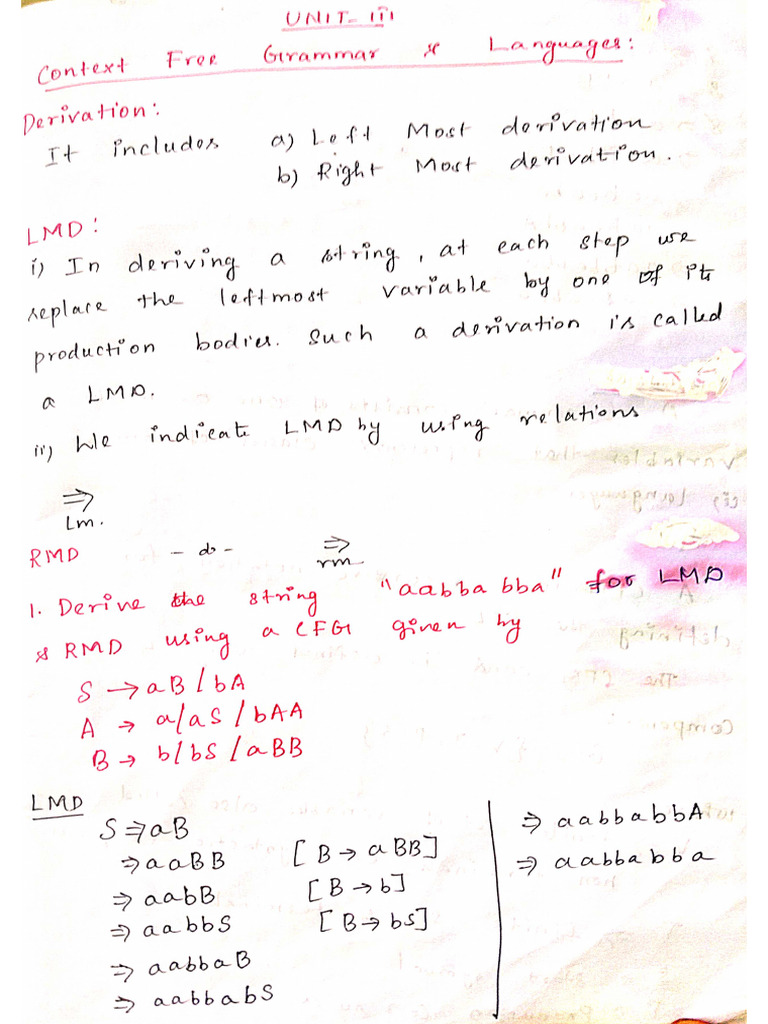 UNIT-III
Context Free Grammar & Languages:
Derivation:
It includes a) Left Most derivation
b) Right Most derivation.
LMD:
i) In deriving a string, at each step we
replace the leftmost variable by one of its
production bodies. Such a derivation is called
a LMD.
ii) We indicate LMD by using relations
⇒
Lm.
RMD - do - ⇒
rm
1. Derive the string "aabbabba" for LMD
& RMD using a CFG given by
S → aB / bA
A → a/aS / bAA
B → b/bS / aBB
LMD
S ⇒ aB
⇒ aaBB [B → aBB]
⇒ aabB [B → b]
⇒ aabbS [B → bS]
⇒ aabbaB
⇒ aabbabS
⇒ aabbabbA
⇒ aabbabba